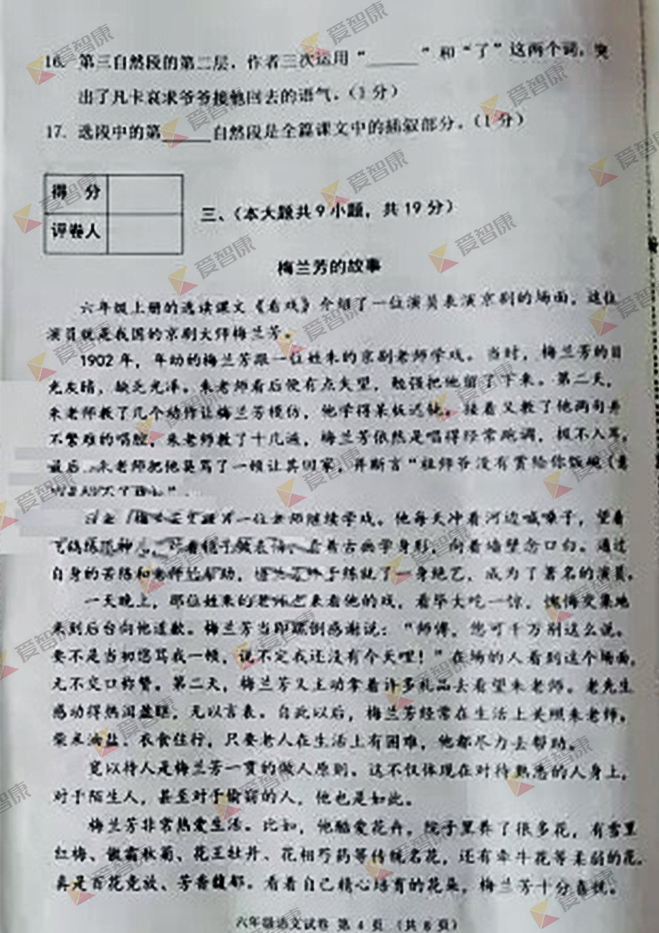 16. 第三自然段的第二层，作者三次运用“______”和“了”这两个词，突
出了凡卡哀求爷爷接他回去的语气。（1分）
17. 选段中的第______自然段是全篇课文中的插叙部分。（1分）
得 分
评卷人
三、（本大题共9小题，共19分）
梅兰芳的故事
六年级上册的选读课文《看戏》介绍了一位演员表演京剧的场面，这位
演员就是我国的京剧大师梅兰芳。
1902年，年幼的梅兰芳跟一位姓朱的京剧老师学戏。当时，梅兰芳的目
光灰暗，缺乏光泽。朱老师看后便有点失望，勉强把他留了下来。第二天，
朱老师教了几个动作让梅兰芳模仿，他学得呆板迟钝。接着又教了他两句并
不繁难的唱腔，朱老师教了十几遍，梅兰芳依然是唱得经常跑调，极不入耳。
最后，朱老师把他臭骂了一顿让其回家，并断言“祖师爷没有赏给你饭碗（意
一位老师继续学戏。他每天冲着河边喊嗓子，望着
飞鸽练眼神，对着镜子做表情，古曲学身形，向着墙壁念口白。通过
自身的苦练和老师的帮助，终于练就了一身绝艺，成为了著名的演员。
一天晚上，那位姓朱的老师来看他的戏，看毕大吃一惊，愧悔交集地
来到后台向他道歉。梅兰芳当即跪倒感谢说：“师傅，您可千万别这么说。
要不是当初您骂我一顿，说不定我还没有今天哩！”在场的人看到这个场面，
无不交口称赞。第二天，梅兰芳又主动拿着许多礼品去看望朱老师。老先生
感动得热泪盈眶，无以言表。自此以后，梅兰芳经常在生活上关照朱老师。
柴米油盐、衣食住行，只要老人在生活上有困难，他都尽力去帮助。
宽以待人是梅兰芳一贯的做人原则。这不仅体现在对待熟悉的人身上，
对于陌生人，甚至对于偷窃的人，他也是如此。
梅兰芳非常热爱生活。比如，他酷爱花卉。院子里养了很多花，有雪里
红梅、傲霜秋菊、花王牡丹、花相芍药等传统名花，还有牵牛花等柔弱的花。
真是百花竞放、芳香馥郁。看着自己精心培育的花朵，梅兰芳十分喜悦。
六年级语文试卷 第 4 页 （共 8 页）
爱智康